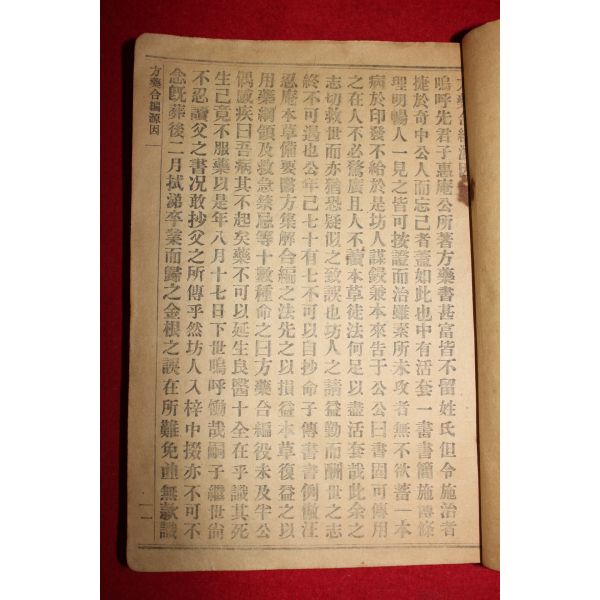 方藥合編源因
嗚呼先君子惠庵公所著方藥書甚富皆不留姓氏但令施治者
捷於奇中公人而忘己者蓋如此也中有活套一書書簡施傳條
理明暢人一見之皆可按證而治雖素所未攻者無不欲蓄一本
病於印發不給於是坊人謀鋟兼本來告于公公曰書固可傳用
之在人不必騖廣且人不讀本草徒法何足以盡活套哉此余之
志切救世而亦猶恐疑似之致誤也坊人之請益勤而酬世之志
終不可遏也公年已七十有七不可以自抄命子傳書書例倣汪
忍庵本草備要醫方集解合編之法先之以損益本草復益之以
用藥綱領及救急禁忌等十數種命之曰方藥合編役未及半公
偶感疾曰吾病其不起矣藥不可以延生良醫十全在乎識其死
生已竟不服藥以是年八月十七日下世嗚呼慟哉嗣子繼世尙
不忍讀父之書况敢抄父之所傳乎然坊人入梓中掇亦不可不
念旣葬後二月拭涕卒業而歸之金根之誤在所難免庶無歉識
方藥合編源因
一